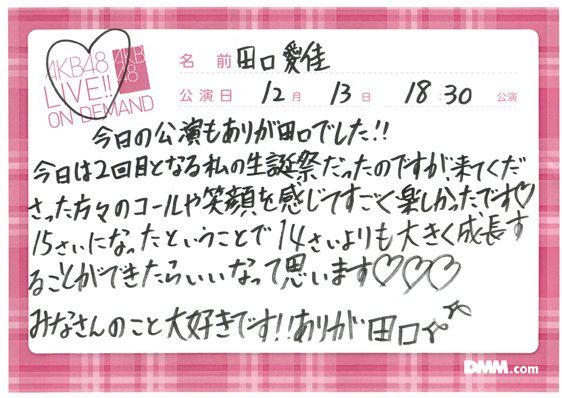 AKB48
LIVE!!
ON DEMAND
AKB
48
名前 田口愛佳
公演日 12月 13日 18:30 公演
今日の公演もありが田口でした!!
今日は2回目となる私の生誕祭だったのですが来てくだ
さった方々のコールや笑顔を感じてすごく楽しかったです♡
15さいになったということで14さいよりも大きく成長す
ることができたらいいなって思います♡♡♡
みなさんのこと大好きです!!ありが田口☆☆
DMM.com